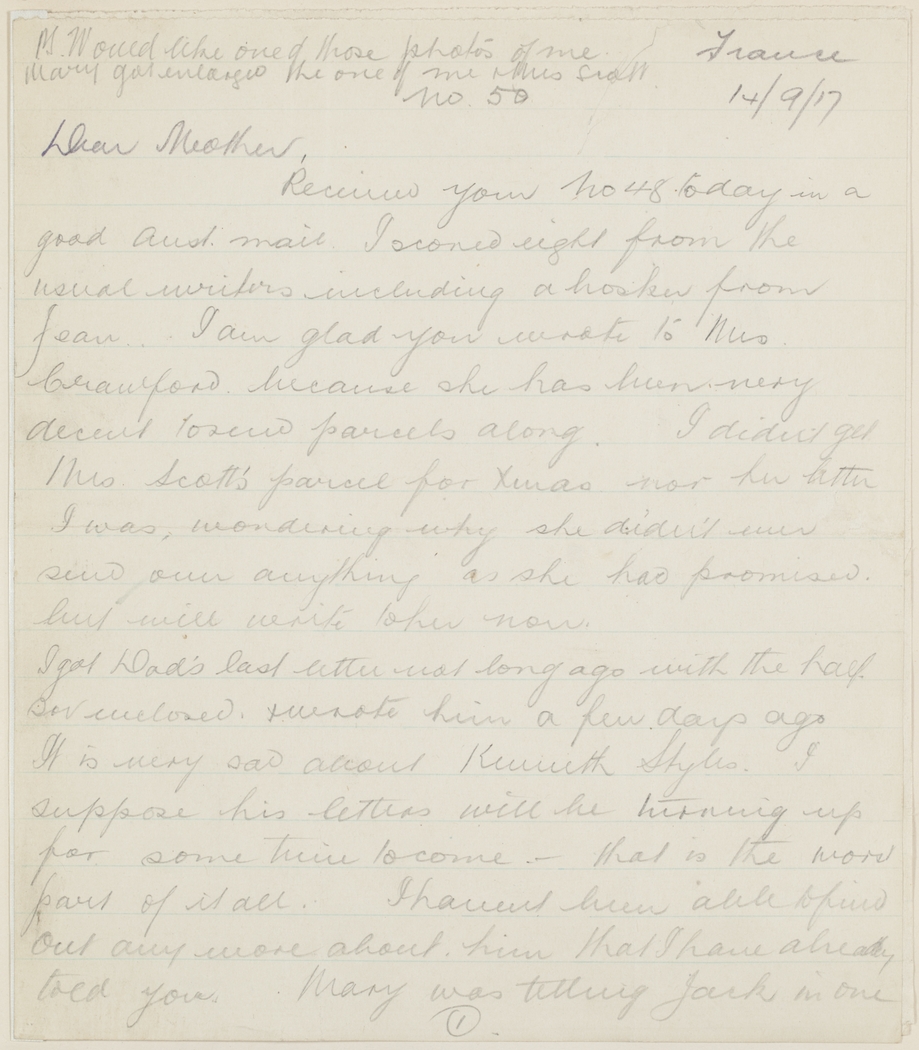 PS. Would like one of those photos of me
Mary got enlarged the one of me & Miss Scott
France
No. 50
14/9/17
Dear Mother,
Received your No 48 today in a
good Aust. mail. I scored eight from the
usual writers including a bosker from
Jean... I am glad you wrote to Mrs.
Crawford. because she has been very
decent to send parcels along. I didn't get
Mrs. Scott's parcel for Xmas nor her letter
I was, wondering why she didn't ever
send over anything as she had promised.
but will write to her now.
I got Dad's last letter not long ago with the half
Sov enclosed. & wrote him a few days ago
It is very sad about Kenneth Styles. I
suppose his letters will be turning up
for some time to come — that is the worst
part of it all. I havent been able to find
out any more about. him that I have already
told you. Mary was telling Jack in one
1